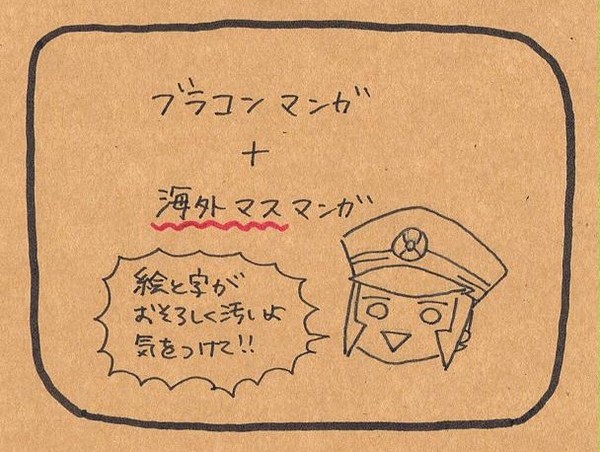 ブラコンマンガ
+
海外マスマンガ
絵と字が
おそろしく汚いよ
気をつけて!!